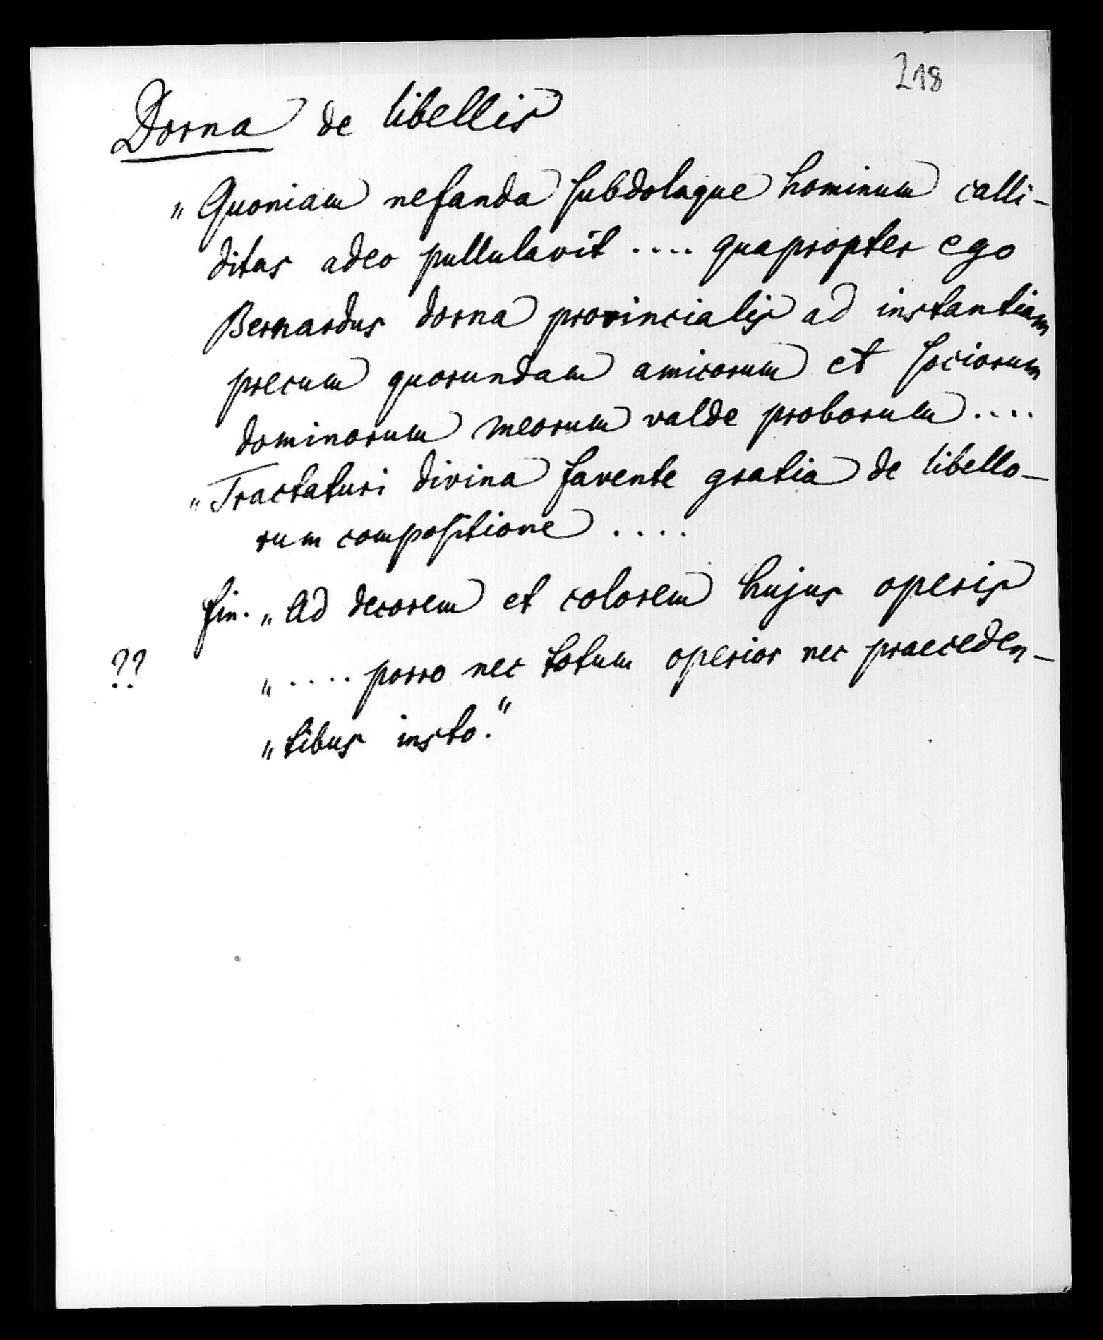 218
Dorna de libellis
„Quoniam nefanda subdolaque hominum calli-
ditas adeo pullulavit .... quapropter ego
Bernardus dorna provincialis ad instantiam
precum quorundam amicorum et sociorum
dominorum meorum valde proborum ....
„Tractaturi divina favente gratia de libello-
rum compositione ....
fin. „Ad decorem et colorem hujus operis
?? „.... porro nec totum operior nec praeceden-
„tibus insto."